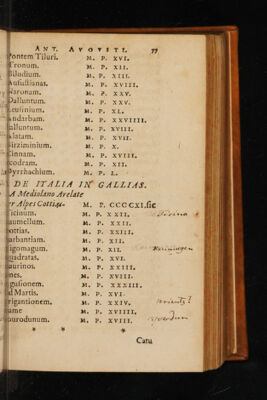 ANT. AVGVSTI. 77
Pontem Tiluri. M. P. XVI.
Tronum. M. P. XII.
Bilodium. M. P. XIII.
Aufustianas. M. P. XVIII.
Naronam. M. P. XXV.
Dalluntum. M. P. XXV.
Leusinium. M. P. XL.
Andarbam. M. P. XXVIIII.
Salluntum. M. P. XVIII.
Alatam. M. P. XVII.
Birziminium. M. P. X.
Cinnam. M. P. XVIII.
Scodram. M. P. XII.
Dyrrhachium. M. P. L.
DE ITALIA IN GALLIAS.
A Mediolano Arelate
per Alpes Cottias M. P. CCCCXI. sic
Ticinum. M. P. XXII.
Laumellum. M. P. XXII.
Cottias. M. P. XXIII.
Carbantiam. M. P. XII.
Rigomagum. M. P. XII.
quadratas. M. P. XVI.
Taurinos. M. P. XXIII.
Fines. M. P. XVIII.
Segusionem. M. P. XXXIII.
ad Martis. M. P. XVI.
Brigantionem M. P. XXIV.
Rame M. P. XVIIII.
Eburodunum. M. P. XVIII.
* * *
Catu